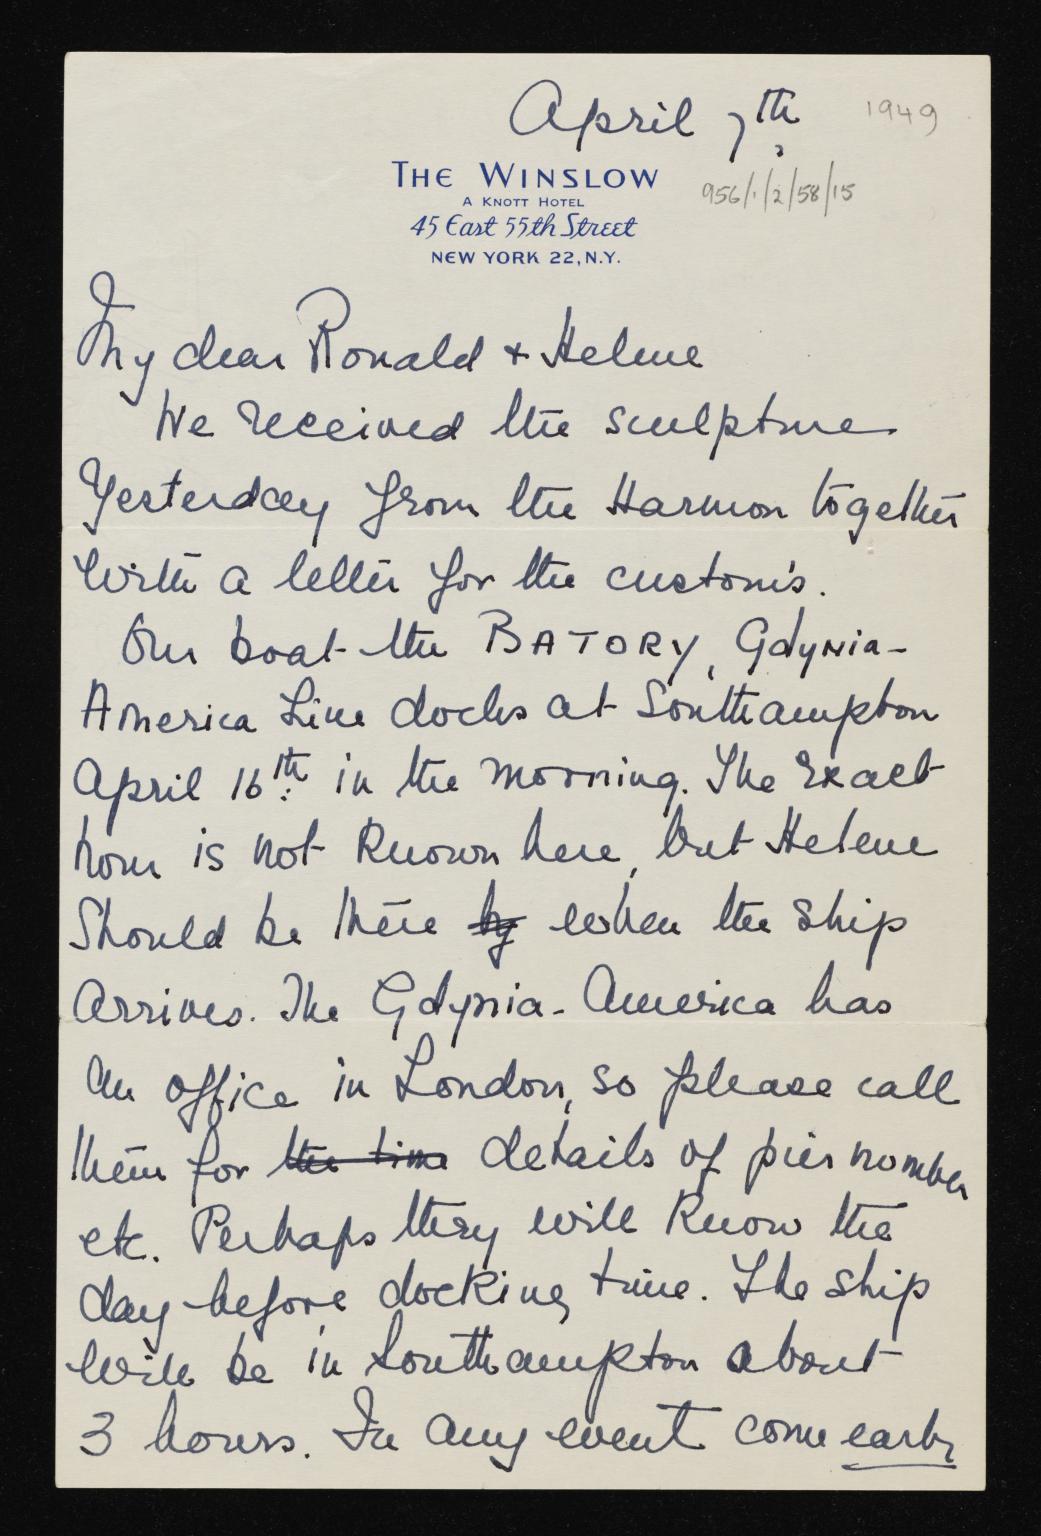 April 7th.
1949
THE WINSLOW
A KNOTT HOTEL
45 East 55th Street
NEW YORK 22, N.Y.
956/1/2/58/15
My dear Ronald + Helene
We received the sculpture
Yesterday from the Harmon together
with a letter for the custom's.
Our boat the BATORY, Gdynia-
America Line docks at Southampton
April 16th. in the morning. The exact
hour is not Known here, but Helene
Should be there by when the ship
Arrives. The Gdynia-America has
An office in London, so please call
them for the time details of pier number
etc. Perhaps they will Know the
day before docking time. The ship
Will be in Southampton about
3 hours. In any event come early